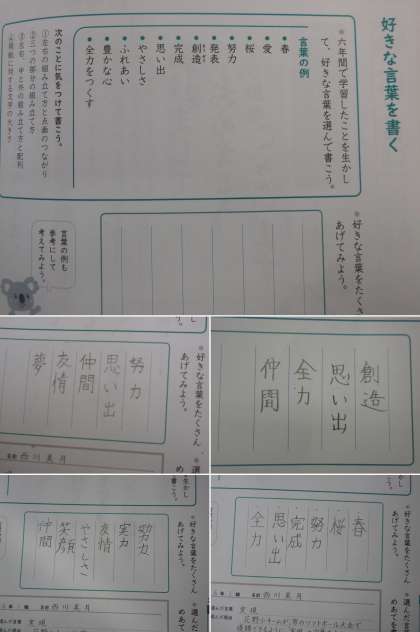 好きな言葉を書く
＊六年間で学習したことを生かし
て、好きな言葉を選んで書こう。
言葉の例
●春
●愛
●桜
●努力
●発表
●創造
●完成
●思い出
●やさしさ
●ふれあい
●豊かな心
●全力をつくす
次のことに気をつけて書こう。
①左右の組み立て方と点画のつながり
②三つの部分の組み立て方
③左右、中と外の組み立て方と配列
④用紙に対する文字の大きさ
＊好きな言葉をたくさん
あげてみよう。
言葉の例も
参考にして
考えてみよう。
＊好きな言葉をたくさん
あげてみよう。
努力
思い出
仲間
友情
夢
名前 西川美月
創造
思い出
全力
仲間
＊好きな言葉をたくさん
あげてみよう。
努力
実力
友情
やさしさ
笑顔
仲間
名前 西川美月
選んだ言葉 実現
＊好きな言葉をたくさん
あげてみよう。
春
桜
努力
完成
思い出
全力
名前 西川美月
選んだ言葉 実現